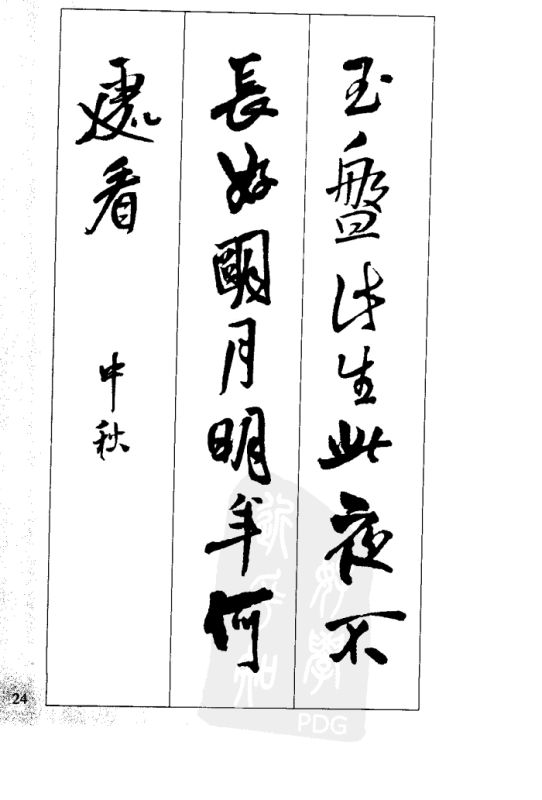 玉盤此生此夜不
長好朙月明年何
處看
中秋
24
PDG